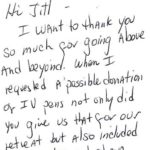 Hi Jill -
I want to thank you
so much for going above
and beyond. When I
requested a possible donation
of IV pens not only did
you give us that for our
retreat but also included